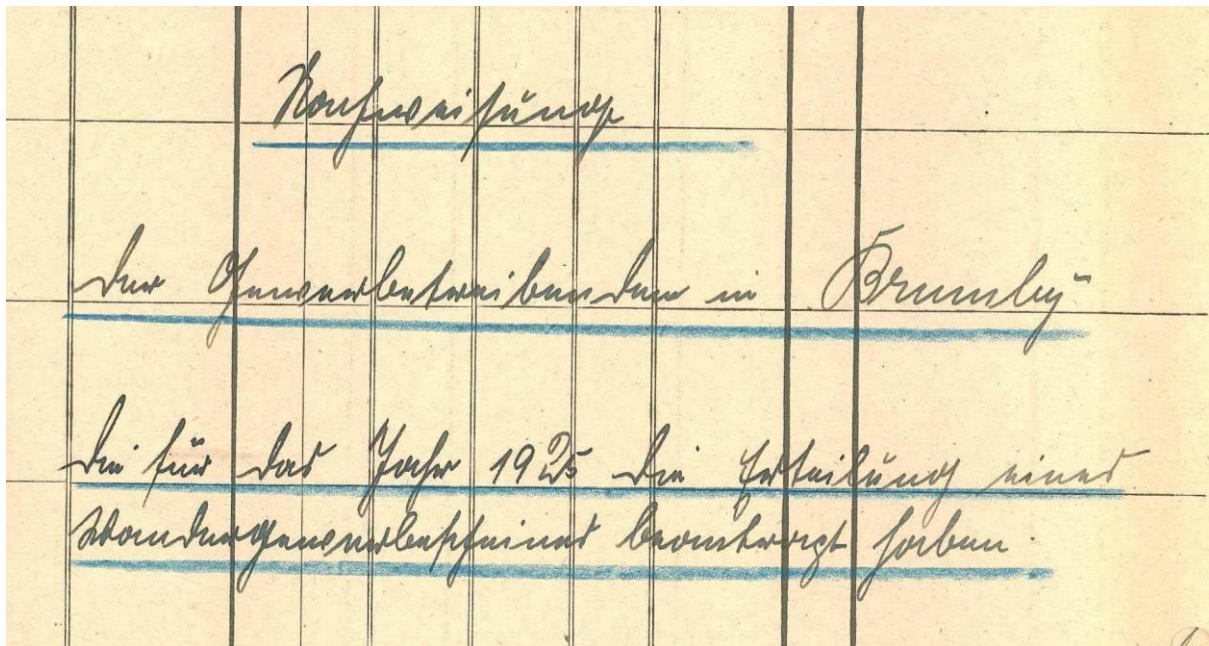 Nachweisung
der Gewerbetreibenden in Brumby
die für das Jahr 1925 die Erteilung eines
Wandergewerbescheines beantragt haben.